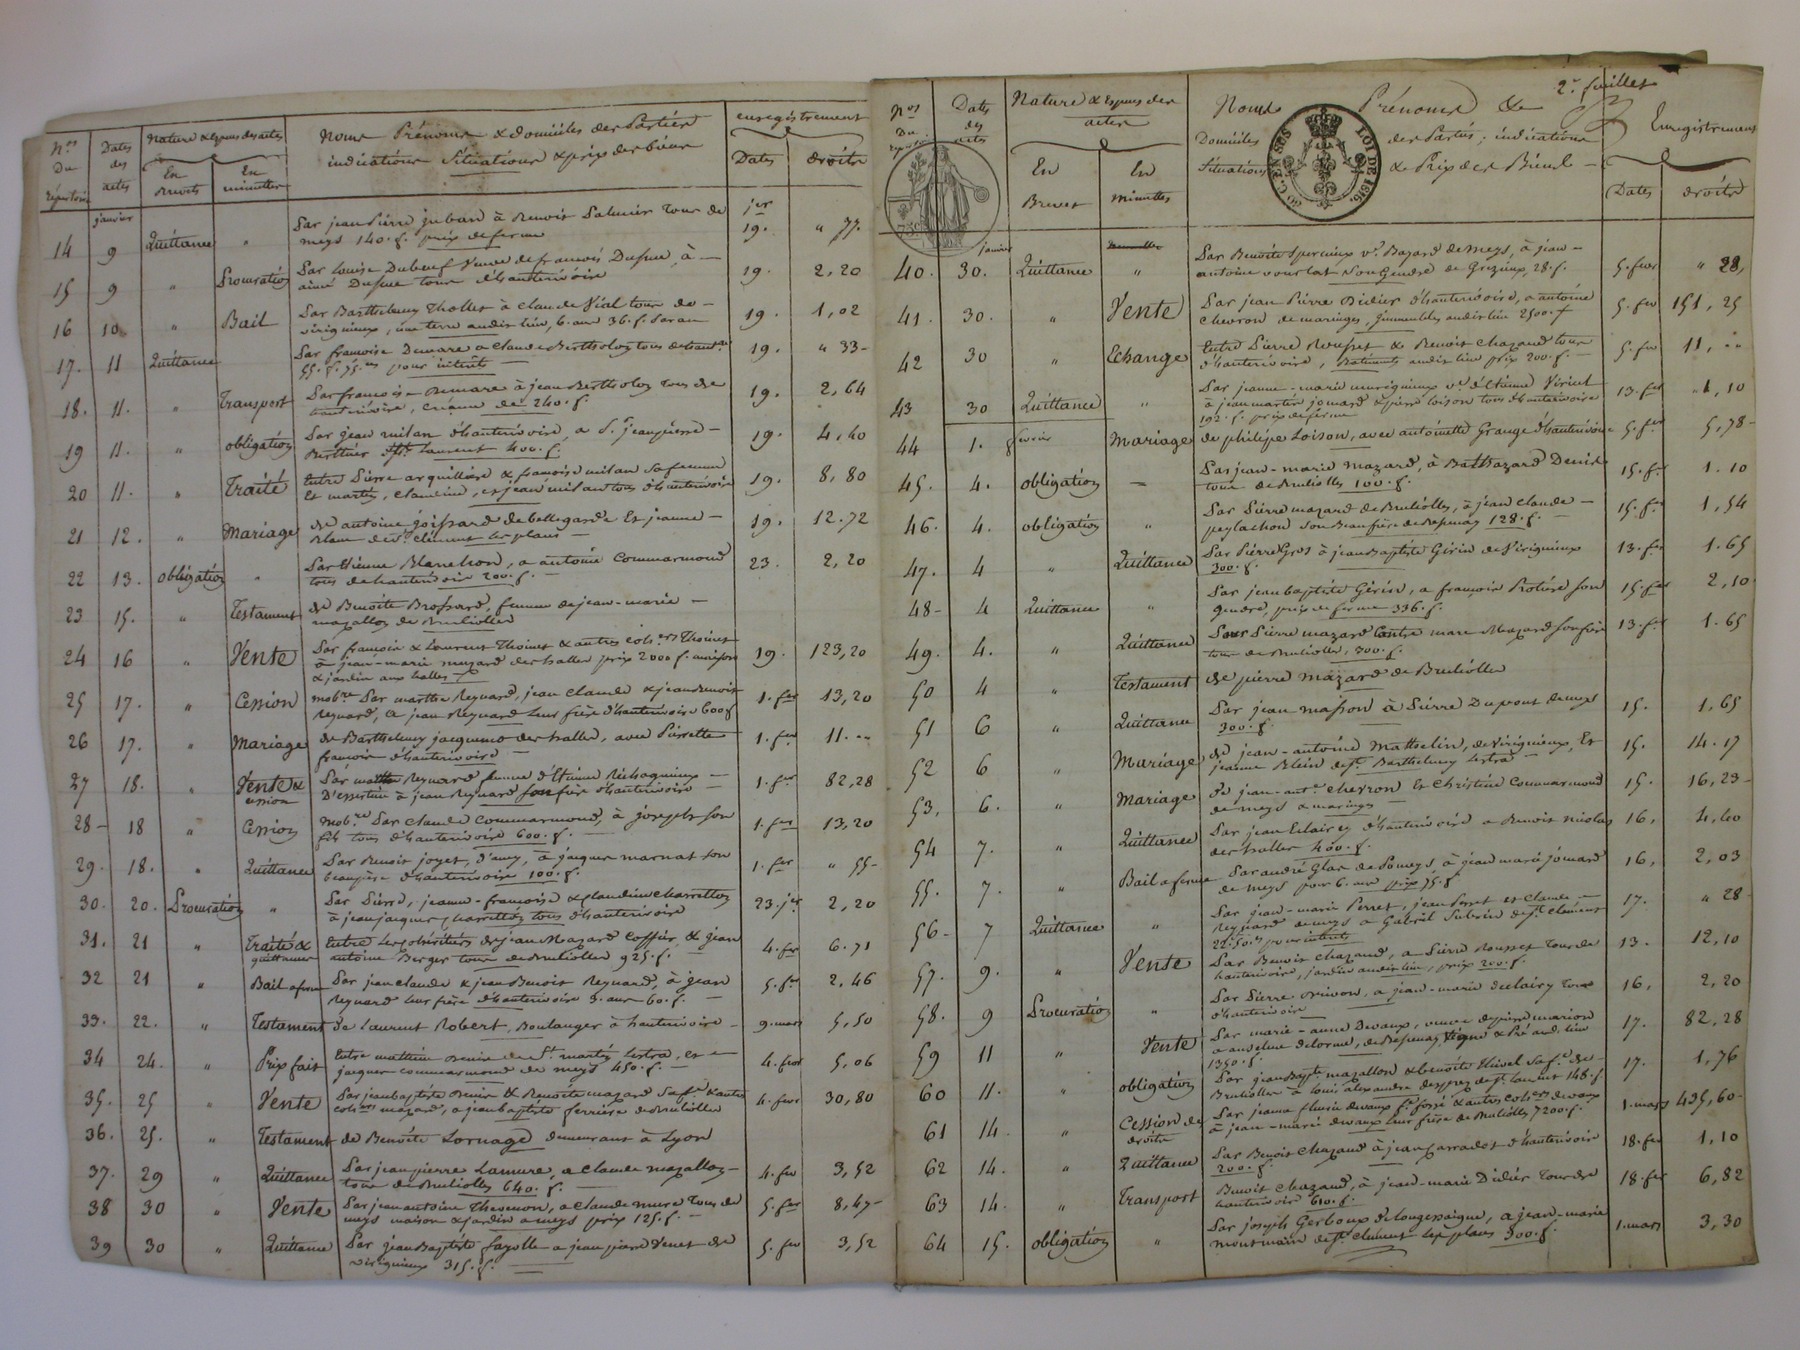 Nos Du Répertoire
Dates des actes
Nature & Espèces des actes
En Brevets
En minutes
Noms Prénoms & domiciles des Parties
indications Situations & prix des biens
enregistrement
Dates
droits
janvier
14 9 Quittance " Par jean Pierre juban à Benoit Saluier tous de jer
meys 140. f. prix de ferme 19. " 77.
15 9 " Procuration Par Louise Dubeuf veuve de françois Dufue, à
aimé Dufue tous d'hauterivoire 19. 2,20
16 10 " Bail Par Barthelemy Thollet à Claude Vial tous de
virigneux, une terre audit lieu, 6. ans 36. f. par an 19. 1,02
17. 11 Quittance Par françoise Demare a Claude Bertholon tous de haut.re
55. f. 75.cs pour intérêts 19. " 33
18. 11. " Transport Par françoise Demare à jean Bertholon tous de
hauterivoire, créance de 240. f. 19. 2,64
19 11. " obligation Par jean milan d'hauterivoire, a S. jeanpierre
Berthier de St Laurent 400. f. 19. 4,40
20 11. " Traité Entre Pierre arquillière & françoise milan sa femme
Et martin, claudine, et jean milan tous d'hauterivoire 19. 8,80
21 12. " Mariage de antoine joissard de bellegarde Et jeanne
Blanc de St clément les places 19. 12.72
22 13. obligation " Par Etienne Blanchon, a antoine Commarmond
tous de hauterivoire 200. f. 23. 2,20
23 15. " Testament de Benoite Brossard, femme de jean-marie
mazallon de Brulioles
24 16 " Vente Par françois & Laurent Thoinet & autres cohers Thoinet
à jean-marie mazard des halles prix 2000 f. maison
& jardin aux halles 19. 123,20
25 17. " Cession mobre Par marthe Reynard, jean claude & jean Benoit
Reynard, a jean Reynard leur frère d'hauterivoire 600 f 1. fer 13,20
26 17. " Mariage de Barthelemy jacquemo des halles, avec Pierrette
françois d'hauterivoire 1. fer 11. "
27 18. " Vente &
cession Par marthe Reynard femme d'Etienne Richagneux
D'essertine à jean Reynard son frère d'hauterivoire 1. fer 82,28
28 18 " Cession mobre Par claude Commarmond, à joseph son
fils tous d'hauterivoire 600. f. 1. fer 13,20
29. 18. " Quittance Par Benoit joyet, d'avey, à jacques marnat son
beaupère d'hauterivoire 100. f. 1. fer " 55
30. 20. Procuration " Par Pierre, jeanne-françoise & claudine charretton
à jean jacques charretton tous d'hauterivoire 23. jer 2,20
31. 21 " Traité &
quittance Entre Les cohéritiers de jean Mazard coffier, & jean
antoine Berger tous de Brulioles 925. f. 4. fer 6.71
32 21 " Bail a ferme Par jean claude & jean Benoit Reynard, à jean
Reynard leur frère d'hauterivoire 9. ans 60. f. 5. fer 2,46
33. 22. " Testament de Laurent Robert, Boulanger à hauterivoire 9. mars 5,50
34 24. " Prix fait Entre mathieu Benier de St. martin Lestra, et
jacques commarmond de meys 450. f. 4. fer 5,06
35. 25 " Vente Par jean baptiste Benier & Benoite mazard sa fe & autres
cohers mazard, a jean baptiste ferrière de Brulioles 4. fer 30,80
36. 25. " Testament de Benoite Lornage demeurant à Lyon
37. 29 " Quittance Par jean pierre Lamure, a claude mazallon
tous de Brulioles 640. f. 4. fer 3,52
38 30 " Vente Par jean antoine Thevenon, a claude mure tous de
meys maison & jardin a meys prix 125. f. 5. fer 8,47
39 30 " Quittance Par jean Baptiste fayolle a jean pierre Venet de
virigneux 315. f. 5. fer 3,52
2e feuillet
Nos Du
Dates des actes
Nature & Espèces des actes
En Brevet
En minutes
Noms Prénoms &
Domiciles des Parties, indications
Situations & Prix des Biens
Enregistrement
Dates
droits
LOI DE 1816.
75c
janvier
40. 30. Quittance " Par Benoite Spercieux ve Bazard de Meys, à jean
antoine vourlat son Gendre de Grezieux, 28. f. 5. fer " 28,
41. 30. " Vente Par jean Pierre Didier d'hauterivoire, a antoine
Chevron de maringes, immeubles audit lieu 2500. f 5. fer 151,25
42 30 " Echange Entre Pierre Rousset & Benoit Chazaud tous
d'hauterivoire, Batiments audit lieu prix 200. f. 5. fer 11, "
43 30 Quittance " Par jeanne-marie murigneux ve d'Etienne Viricel
à jean martin jomard & pierre loison tous d'hauterivoire
192. f. prix de ferme 13. fer 1,10
44 1. fevrier Mariage de philipe Loison, avec antoinette Grange d'hauterivoire 5. fer 5,78
45. 4. obligation Par jean-marie Mazard, à Balthazard Denis
tous de Brulioles 100. f. 15. fer 1.10
46. 4. obligation " Par Pierre mazard de Brulioles, à jean claude
peylachon son Beau frère de Bessenay 128. f. 15. fer 1,54
47. 4 " Quittance Par Pierre Gros à jean Baptiste Gérin de Virigneux
300. f. 13. fer 1.65
48 4 Quittance " Par jean baptiste Gérin, a françois Protière son
gendre, prix de ferme 336. f. 15. fer 2,10
49. 4. " Quittance Par Pierre mazard Contre marc Mazard son frère
tous de Brulioles, 300. f. 13. fer 1.65
50 4 " Testament de pierre Mazard de Brulioles
51 6 " Quittance Par jean masson à Pierre Dupont de meys
300. f. 15. 1,65
52 6 " Mariage de jean-antoine Matthelin, de Virigneux, Et
jeanne Blein de St. Barthelemy Lestra 15. 14.17
53. 6. " Mariage de jean-ante chevron Et Christine Commarmond
de meys & maringes 15. 16,23
54 7. " Quittance Par jean Eclaircy d'hauterivoire a Benoit nicolas
des halles 400. f. 16, 4,40
55. 7. " Bail a ferme Par andré Glas de Pomeys, à jean marie jomard
de meys pour 6. ans prix 75. f 16, 2,03
56 7 Quittance " Par jean-marie Perret, jean Perret et Claude
Reynard de meys a Gabriel Subrin de St. clément
22f50c pour intérêts 17. " 28
57. 9. " Vente Par Benoit Chazaud, a Pierre Rousset tous de
hauterivoire, jardin audit lieu, prix 200. f. 13. 12,10
58. 9 Procuration " Par Pierre Privon, a jean-marie Declairy tous
d'hauterivoire 16, 2,20
59 11 " Vente Par marie-anne Devaux, veuve de pierre marion
a anselme Delorme, de Bessenay, vigne & Pré aud. lieu
1350. f. 17. 82,28
60 11. " obligation Par jean Bapte mazallon & benoite Thivel sa fe de
Brulioles a louis alexandre desprez de St. Laurent 148. f 17. 1,76
61 14. " Cession de
droits Par jeanne fleurie devaux fe fossi & autres cohers devaux
à jean-marie devaux leur frère de Brulioles 7200. f. 1. mars 435,60
62 14. " Quittance Par Benoit Chazaud à jean carradot d'hauterivoire
200. f. 18. fer 1,10
63 14. " Transport Benoit Chazaud, à jean-marie Didier tous de
hauterivoire 610. f. 18. fer 6,82
64 15. obligation " Par joseph Gerboux de longessaigne, a jean-marie
montmain de St. Clement les places 300. f. 1. mars 3,30